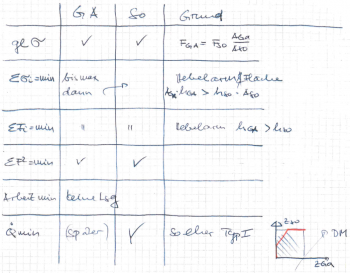 GA So Grund
gl σ ✓ ✓ F_GA = F_SO A_GA/A_SO
Σσ_i = min bis max Hebelarm/Fläche
dann h_GA · A_GA > h_SO · A_SO
ΣF_i = min " " Hebelarm h_GA > h_SO
ΣF² = min ✓ ✓
Arbeit min keine Lsg
Q̇ min (später) ✓ So eher Typ I
z_SO
P. DM
z_GA